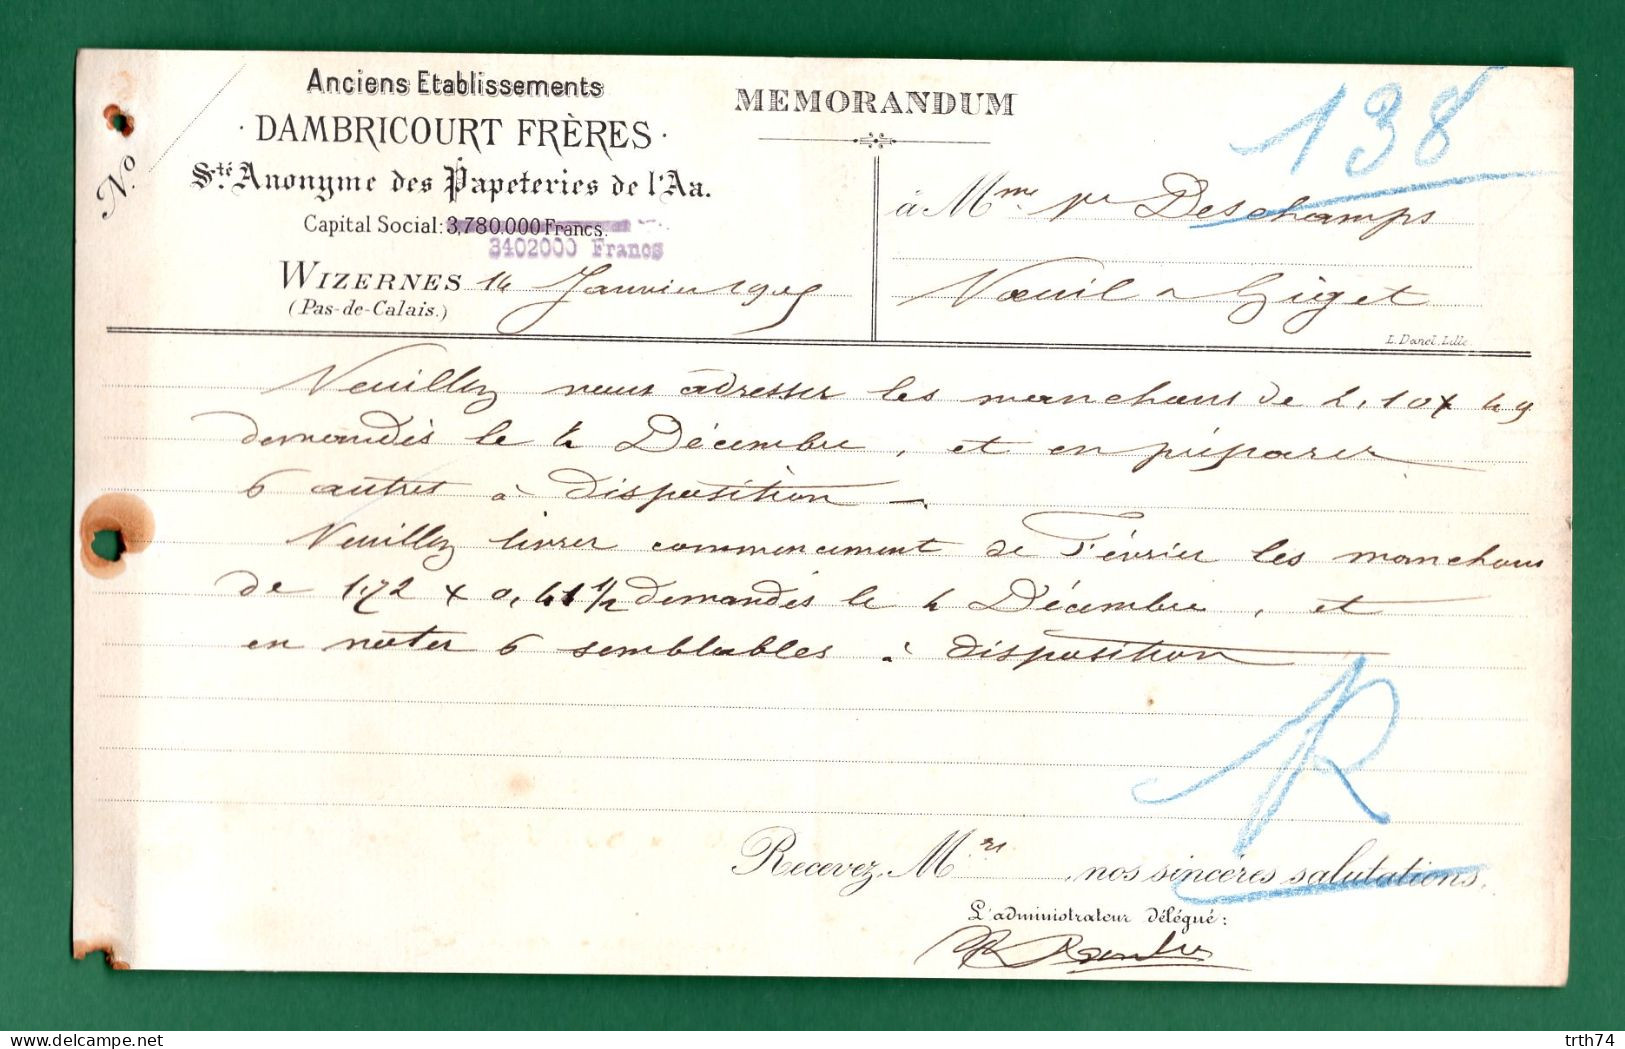 Anciens Etablissements
· DAMBRICOURT FRÈRES ·
Sté. Anonyme des Papeteries de l'Aa.
Capital Social: 3,780,000 Francs.
3402000 Francs
N°.
WIZERNES 14 Janvier 1905
(Pas-de-Calais.)
MEMORANDUM
138
à Mme. Ve Deschamps
Vœuil & Giget
L. Danel. Lille.
Veuillez nous adresser les manchons de 2,10 x 49
demandés le 4 Décembre, et en préparer
6 autres à disposition -.
Veuillez livrer commencement de Février les manchons
de 1.72 x 0,41 1/2 demandés le 4 Décembre, et
en noter 6 semblables à disposition
R
Recevez, M , nos sincères salutations.
L'administrateur délégué: